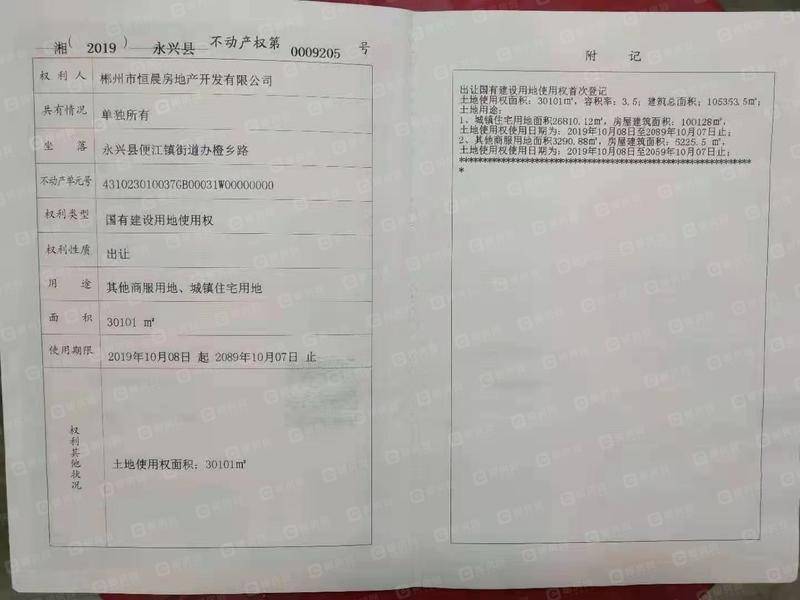 湘(2019)永兴县 不动产权第 0009205 号
权利人 郴州市恒晨房地产开发有限公司
共有情况 单独所有
坐落 永兴县便江镇街道办橙乡路
不动产单元号 431023010037GB00031W00000000
权利类型 国有建设用地使用权
权利性质 出让
用途 其他商服用地、城镇住宅用地
面积 30101 ㎡
使用期限 2019年10月08日 起 2089年10月07日 止
权利其他状况
土地使用权面积:30101㎡
附记
出让国有建设用地使用权首次登记
土地使用权面积:30101㎡,容积率:3.5;建筑总面积:105353.5㎡;
土地用途:
1、城镇住宅用地面积26810.12㎡,房屋建筑面积:100128㎡,
土地使用权使用日期为:2019年10月08日至2089年10月07日止;
2、其他商服用地面积3290.88㎡,房屋建筑面积:5225.5 ㎡,
土地使用权使用日期为:2019年10月08日至2059年10月07日止;